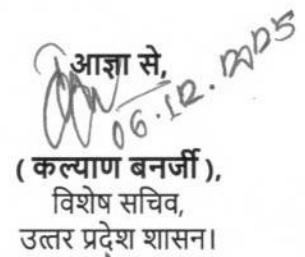 आज्ञा से,
06.12.2025
( कल्याण बनर्जी ),
विशेष सचिव,
उत्तर प्रदेश शासन।